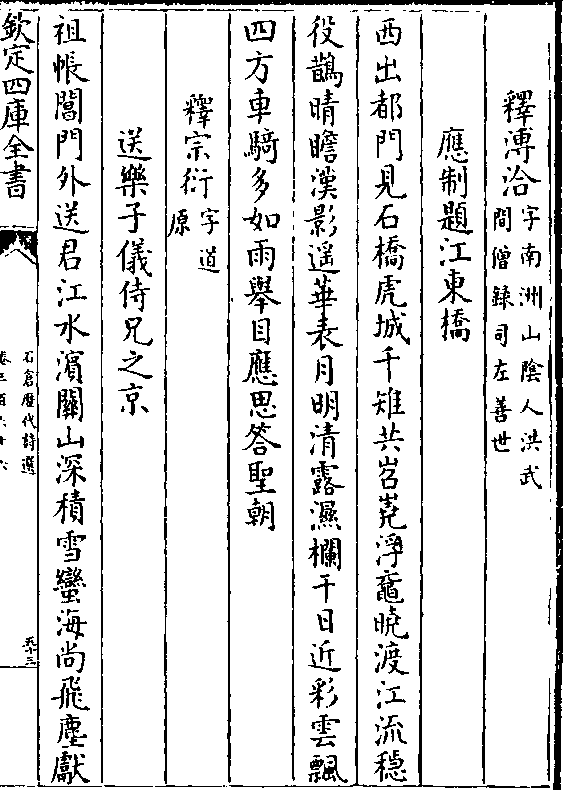 釋溥洽字南洲山陰人洪武
間僧録司左善世
應制題江東橋
西出都門見石橋虎城千雉共岧嶤浮黿曉渡江流穩
役鵲晴瞻漢影遥華表月明清露濕欄干日近彩雲飄
四方車騎多如雨舉目應思答聖朝
釋宗衍字道
原
送樂子儀侍兄之京
祖帳閶門外送君江水濵關山深積雪蠻海尚飛塵獻
欽定四庫全書
石倉歷代詩選